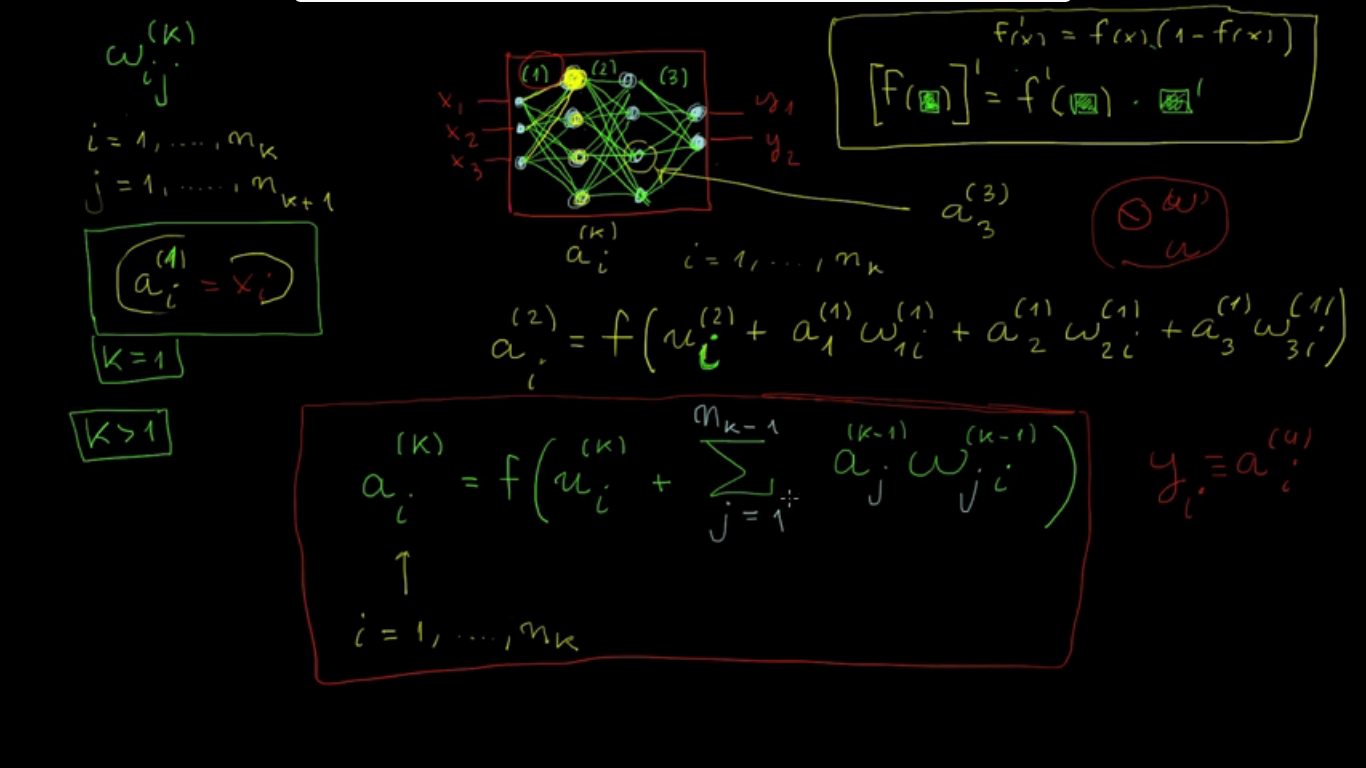 ω_{ij}^{(K)}
i = 1, ....., n_K
j = 1, ......, n_{K+1}
a_i^{(1)} = x_i
K = 1
K > 1
(1) (2) (3)
x_1
x_2
x_3
y_1
y_2
a_i^{(K)} i = 1, ...., n_K
a_3^{(3)}
f'(x) = f(x).(1 - f(x))
[f(▪)]' = f'(▪) · ▪'
w
u
a_i^{(2)} = f(u_i^{(2)} + a_1^{(1)} ω_{1i}^{(1)} + a_2^{(1)} ω_{2i}^{(1)} + a_3^{(1)} ω_{3i}^{(1)})
a_i^{(K)} = f(u_i^{(K)} + Σ_{j=1}^{n_{K-1}} a_j^{(K-1)} ω_{ji}^{(K-1)})
y_i ≡ a_i^{(4)}
↑
i = 1, ....., n_K